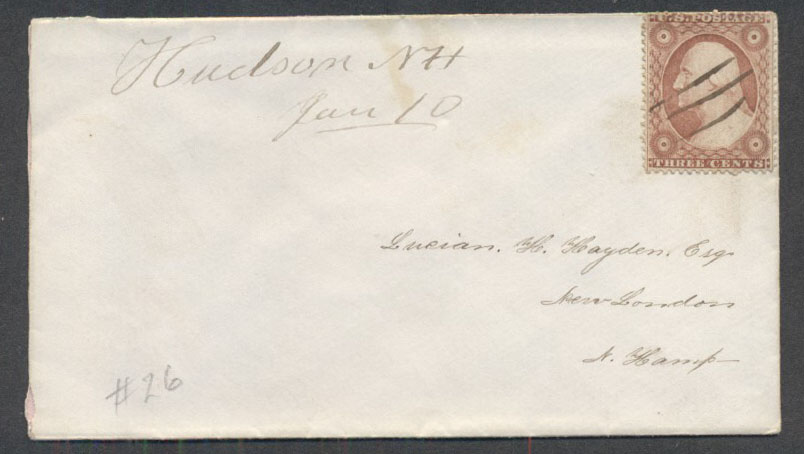 Hudson NH
Jan 10
U.S. POSTAGE
THREE CENTS
Lucian. H. Hayden, Esq
New London
N. Hamp
#26